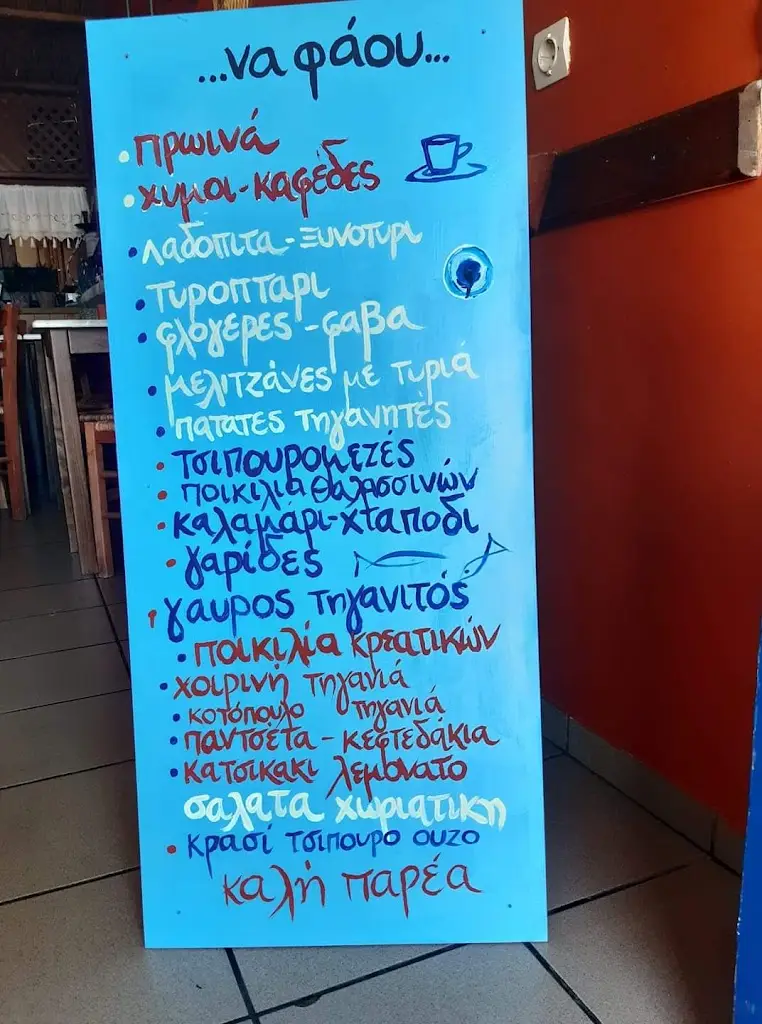 ...να φάου...
πρωινά
χυμοι-καφέδες
λαδοπιτα-ξυνοτυρι
τυροπταρι
φλογερες-φαβα
μελιτζάνες με τυριά
πατατες τηγανητές
τσιπουρομεζές
ποικιλια θαλασσινών
καλαμάρι-χταποδι
γαρίδες
γαυρος τηγανιτός
ποικιλία κρεατικών
χοιρινή τηγανιά
κοτόπουλο τηγανιά
παντσέτα-κεφτεδάκια
κατσικακι λεμονατο
σαλατα χωριατικη
κρασί τσιπουρο ουζο
καλή παρέα